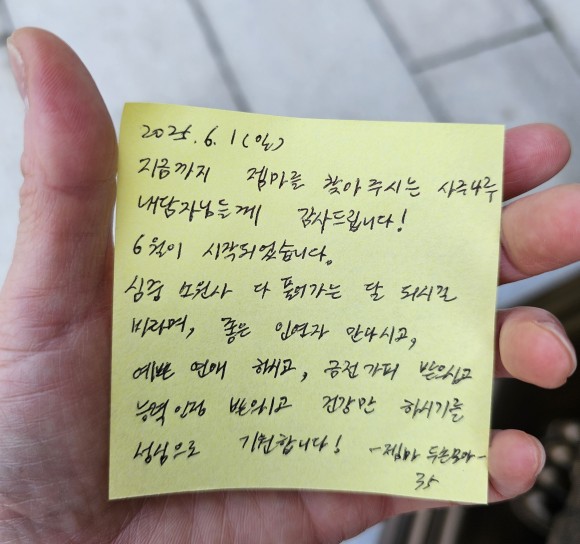 2025. 6. 1 (일)
지금까지 젬마를 찾아주시는 사주나루
내담자님들께 감사드립니다!
6월이 시작되었습니다.
심중 소원사 다 풀어가는 달 되시길
바라며, 좋은 인연자 만나시고,
예쁜 연애 하시고, 금전가피 받으시고
능력인정 받으시고 건강만 하시기를
성심으로 기원합니다! -젬마 두손모아-
35